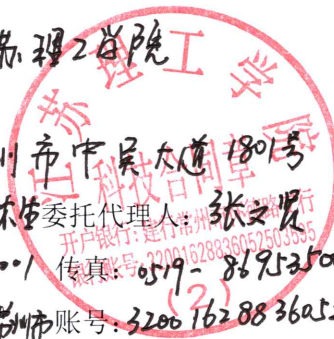 苏理工学院
州市中吴大道1801号
委托代理人：张文贤
001 传真：0519-86953500
账号：32001628836052
江苏理工学院
科技合同章
开户银行：建行常州
账号：32001628836052503595
(2)